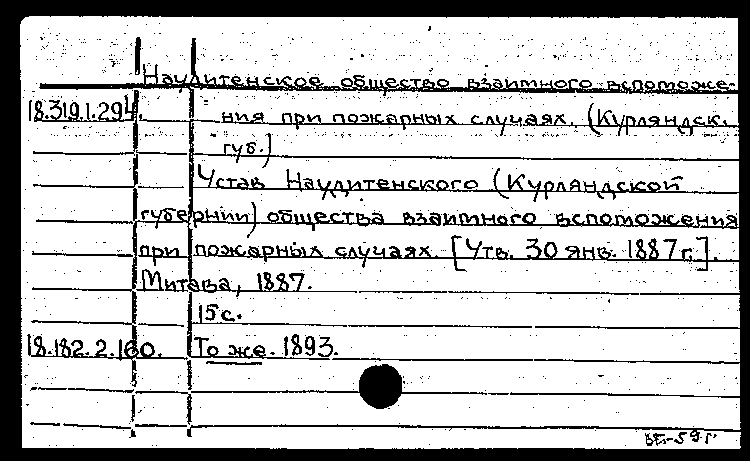 Наудитенское общество взаимного вспоможе-
18.319.1.294. ния при пожарных случаях. (Курляндск.
губ.)
Устав Наудитенского (Курляндской
губернии) общества взаимного вспоможения
при пожарных случаях. [Утв. 30 янв. 1887 г.].
Митава, 1887.
15 с.
18.182.2.160. То же. 1893.